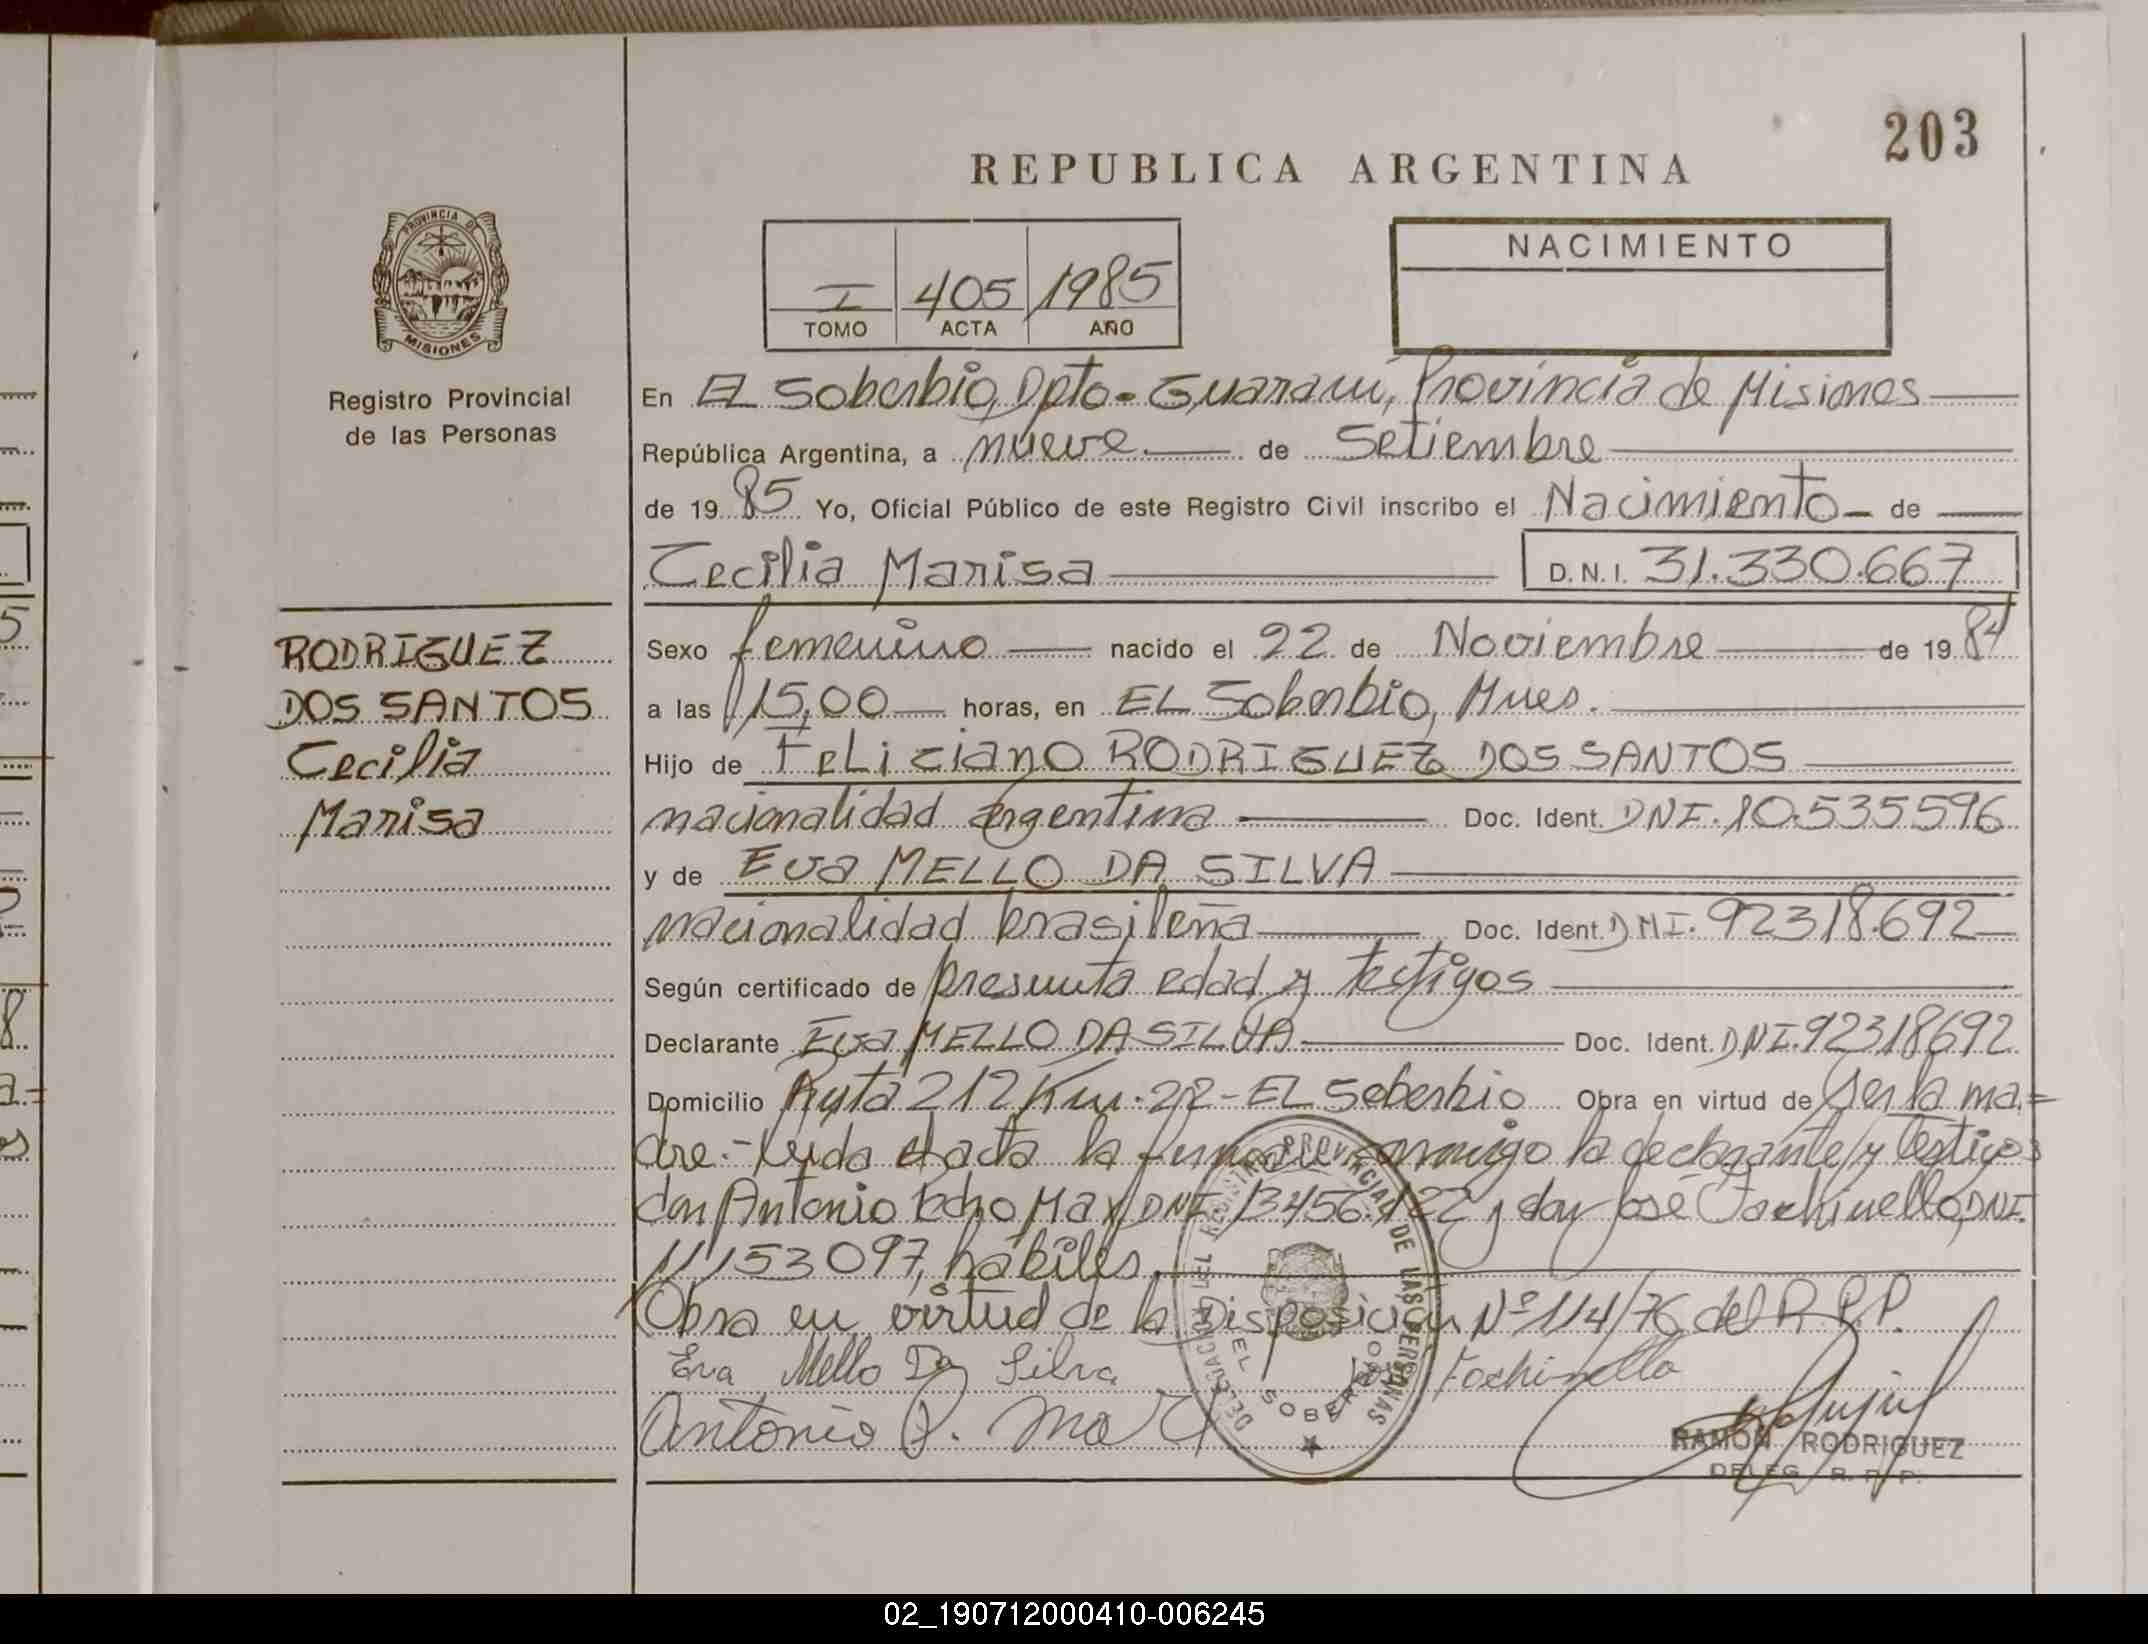 203
REPUBLICA ARGENTINA
PROVINCIA DE
MISIONES
Registro Provincial
de las Personas
I 405 1985
TOMO ACTA AÑO
NACIMIENTO
En EL Soberbio, Dpto. Guaraní, Provincia de Misiones
República Argentina, a nueve de Setiembre
de 1985 Yo, Oficial Público de este Registro Civil inscribo el Nacimiento de
Cecilia Marisa D.N.I. 31.330.667
RODRIGUEZ
DOS SANTOS
Cecilia
Marisa
Sexo femenino nacido el 22 de Noviembre de 1984
a las 15,00 horas, en EL Soberbio, Mnes.
Hijo de FeLiciano RODRIGUEZ DOS SANTOS
nacionalidad argentina Doc. Ident. DNI. 10.535596
y de Eva MELLO DA SILVA
nacionalidad brasileña Doc. Ident. DNI. 92318.692
Según certificado de presunta edad y testigos
Declarante Eva MELLO DA SILVA Doc. Ident. DNI. 92318692
Domicilio Ruta 212 Km. 22 - EL Soberbio Obra en virtud de ser la ma=
dre.- Leida el acta la firman conmigo la declarante y testigos
don Antonio Pedro Max DNI. 13456.122 y don José Fachinello, DNI.
11153097, hábiles.
Obra en virtud de la Disposición Nº 114/76 del R.P.P.
Eva Mello Da Silva José Fachinello
Antonio P. Max
REGISTRO PROVINCIAL DE LAS PERSONAS
EL SOBERBIO
RAMON RODRIGUEZ
DELEG. R. P. P.
02_190712000410-006245